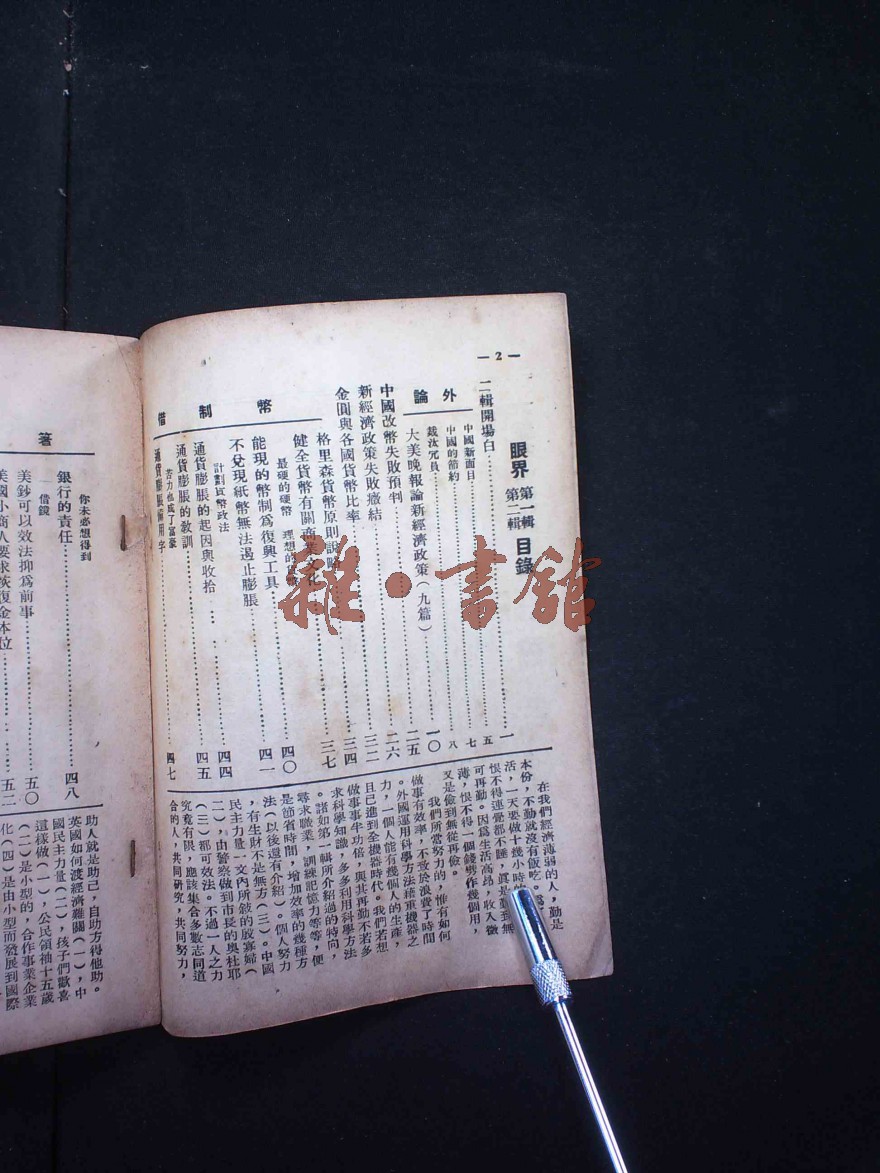 — 2 —
眼界 第一輯 第二輯 目錄
二輯開場白 一
外論
中國新面目 五
中國的節約 七
裁汰冗員 八
大美晚報論新經濟政策(九篇) 一〇
中國改幣失敗預判 二五
新經濟政策失敗癥結 二六
金圓與各國貨幣比率 三二
幣制借
格里森貨幣原則說 三四
健全貨幣有關商業文化 三七
最硬的硬幣 理想的
能現的幣制為復興工具 四〇
不兌現紙幣無法遏止膨脹 四一
計劃貨幣政法
通貨膨脹的起因與收拾 四四
通貨膨脹的教訓 四五
苦力也成了富豪
通貨膨脹 用字 四七
在我們經濟薄弱的人,勤是
本份,不動就沒有飯吃。
活,一天要做十幾小時的
恨不得連覺都不睡,真是勤到無
可再勤。因為生活高昂,收入微
薄,恨不得一個錢劈作幾個用,
又是儉到無從再儉。
我們所當努力的,惟有如何
做事有效率,不致於浪費了時間
。外國運用科學方法產重機器之
力,一個人能有幾個人的生產,
且已進到全機器時代。我們若想
做事事半功倍,與其再勤不若多
求科學知識,多多利用科學方法
。諸如第一輯所介紹過的時向,
尋求職業,訓練記憶力等等,便
是節省時間,增加效率的幾種方
法(以後還有介紹)。個人努力
,有生財不是無方(三)。中國
民主力量一文內所敘的股寡婦(
二),由警察做到市長的奧杜耶
(三)都可效法。不過一人之力
究竟有限,應該集合多數志同道
合的人,共同研究,共同努力,
箸
你未必想得到
銀行的責任 四八
借鏡
美鈔可以效法抑為前事 五〇
美國小商人要求恢復金本位 五二
助人就是助己,自助方得他助。
英國如何渡經濟難關(一),中
國民主力量(二),孩子們歡喜
這樣做(一),公民領袖十五歲
(二)是小型的,合作事業企業
化(四)是由小型而發展到國際
雜·書館